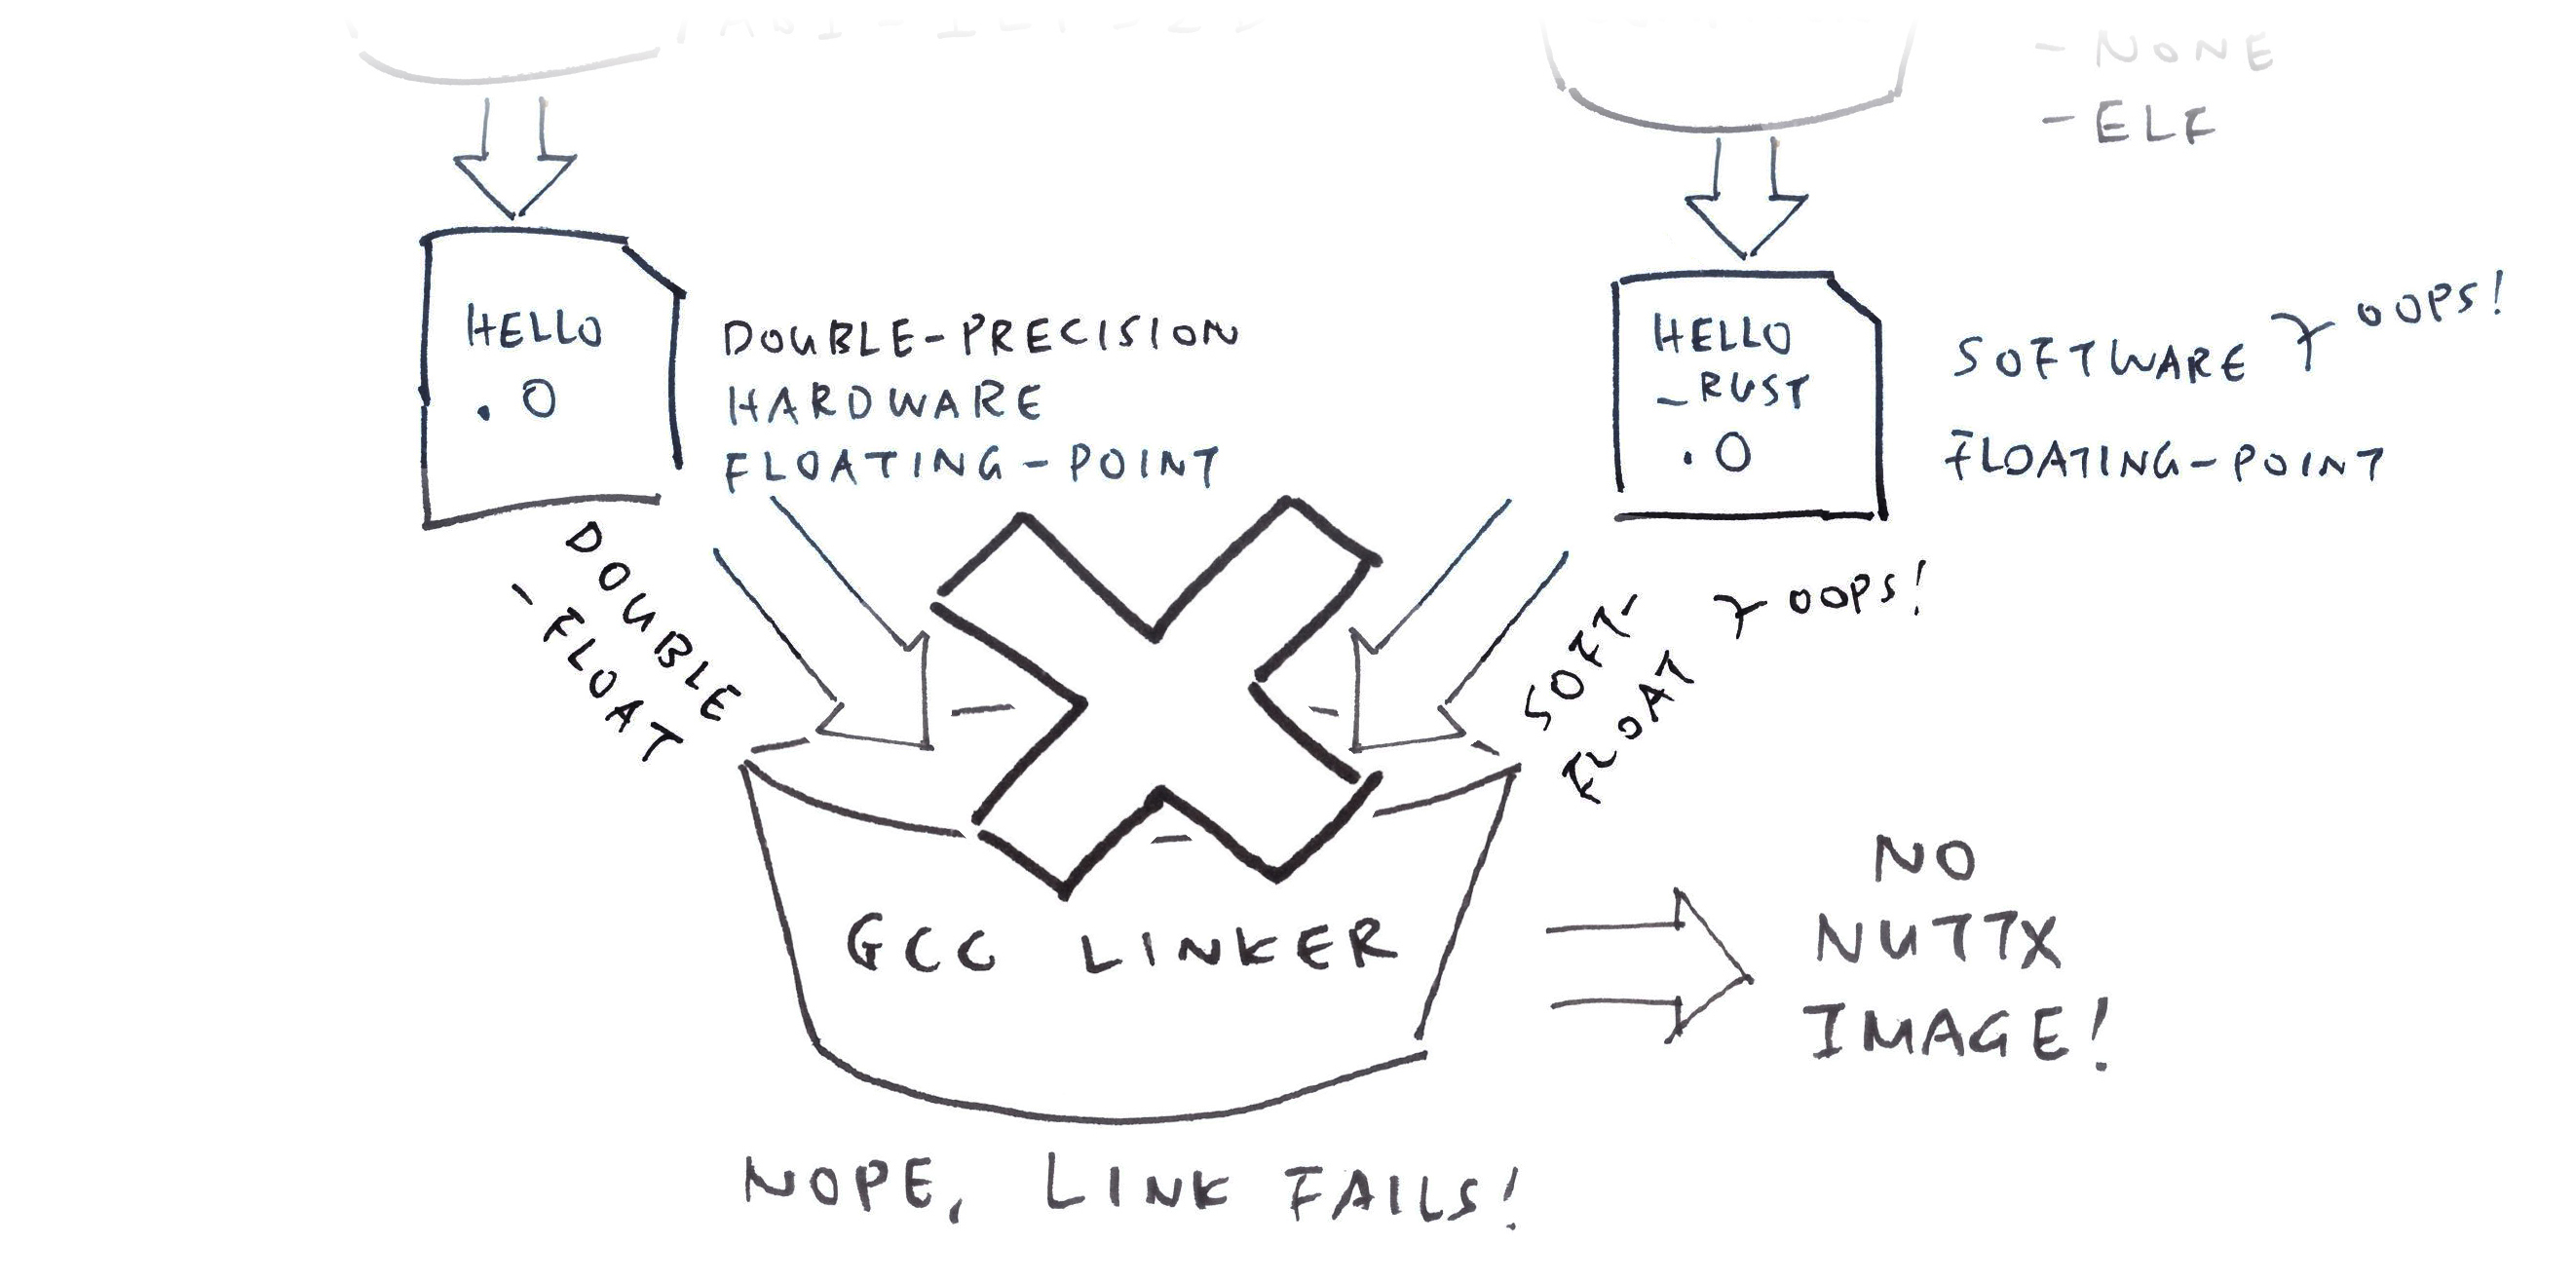 - NONE
- ELF
HELLO
.O
DOUBLE-PRECISION
HARDWARE
FLOATING-POINT
HELLO
_RUST
.O
SOFTWARE } OOPS!
FLOATING-POINT
DOUBLE
-FLOAT
SOFT-
FLOAT } OOPS!
GCC LINKER
NO
NUTTX
IMAGE!
NOPE, LINK FAILS!